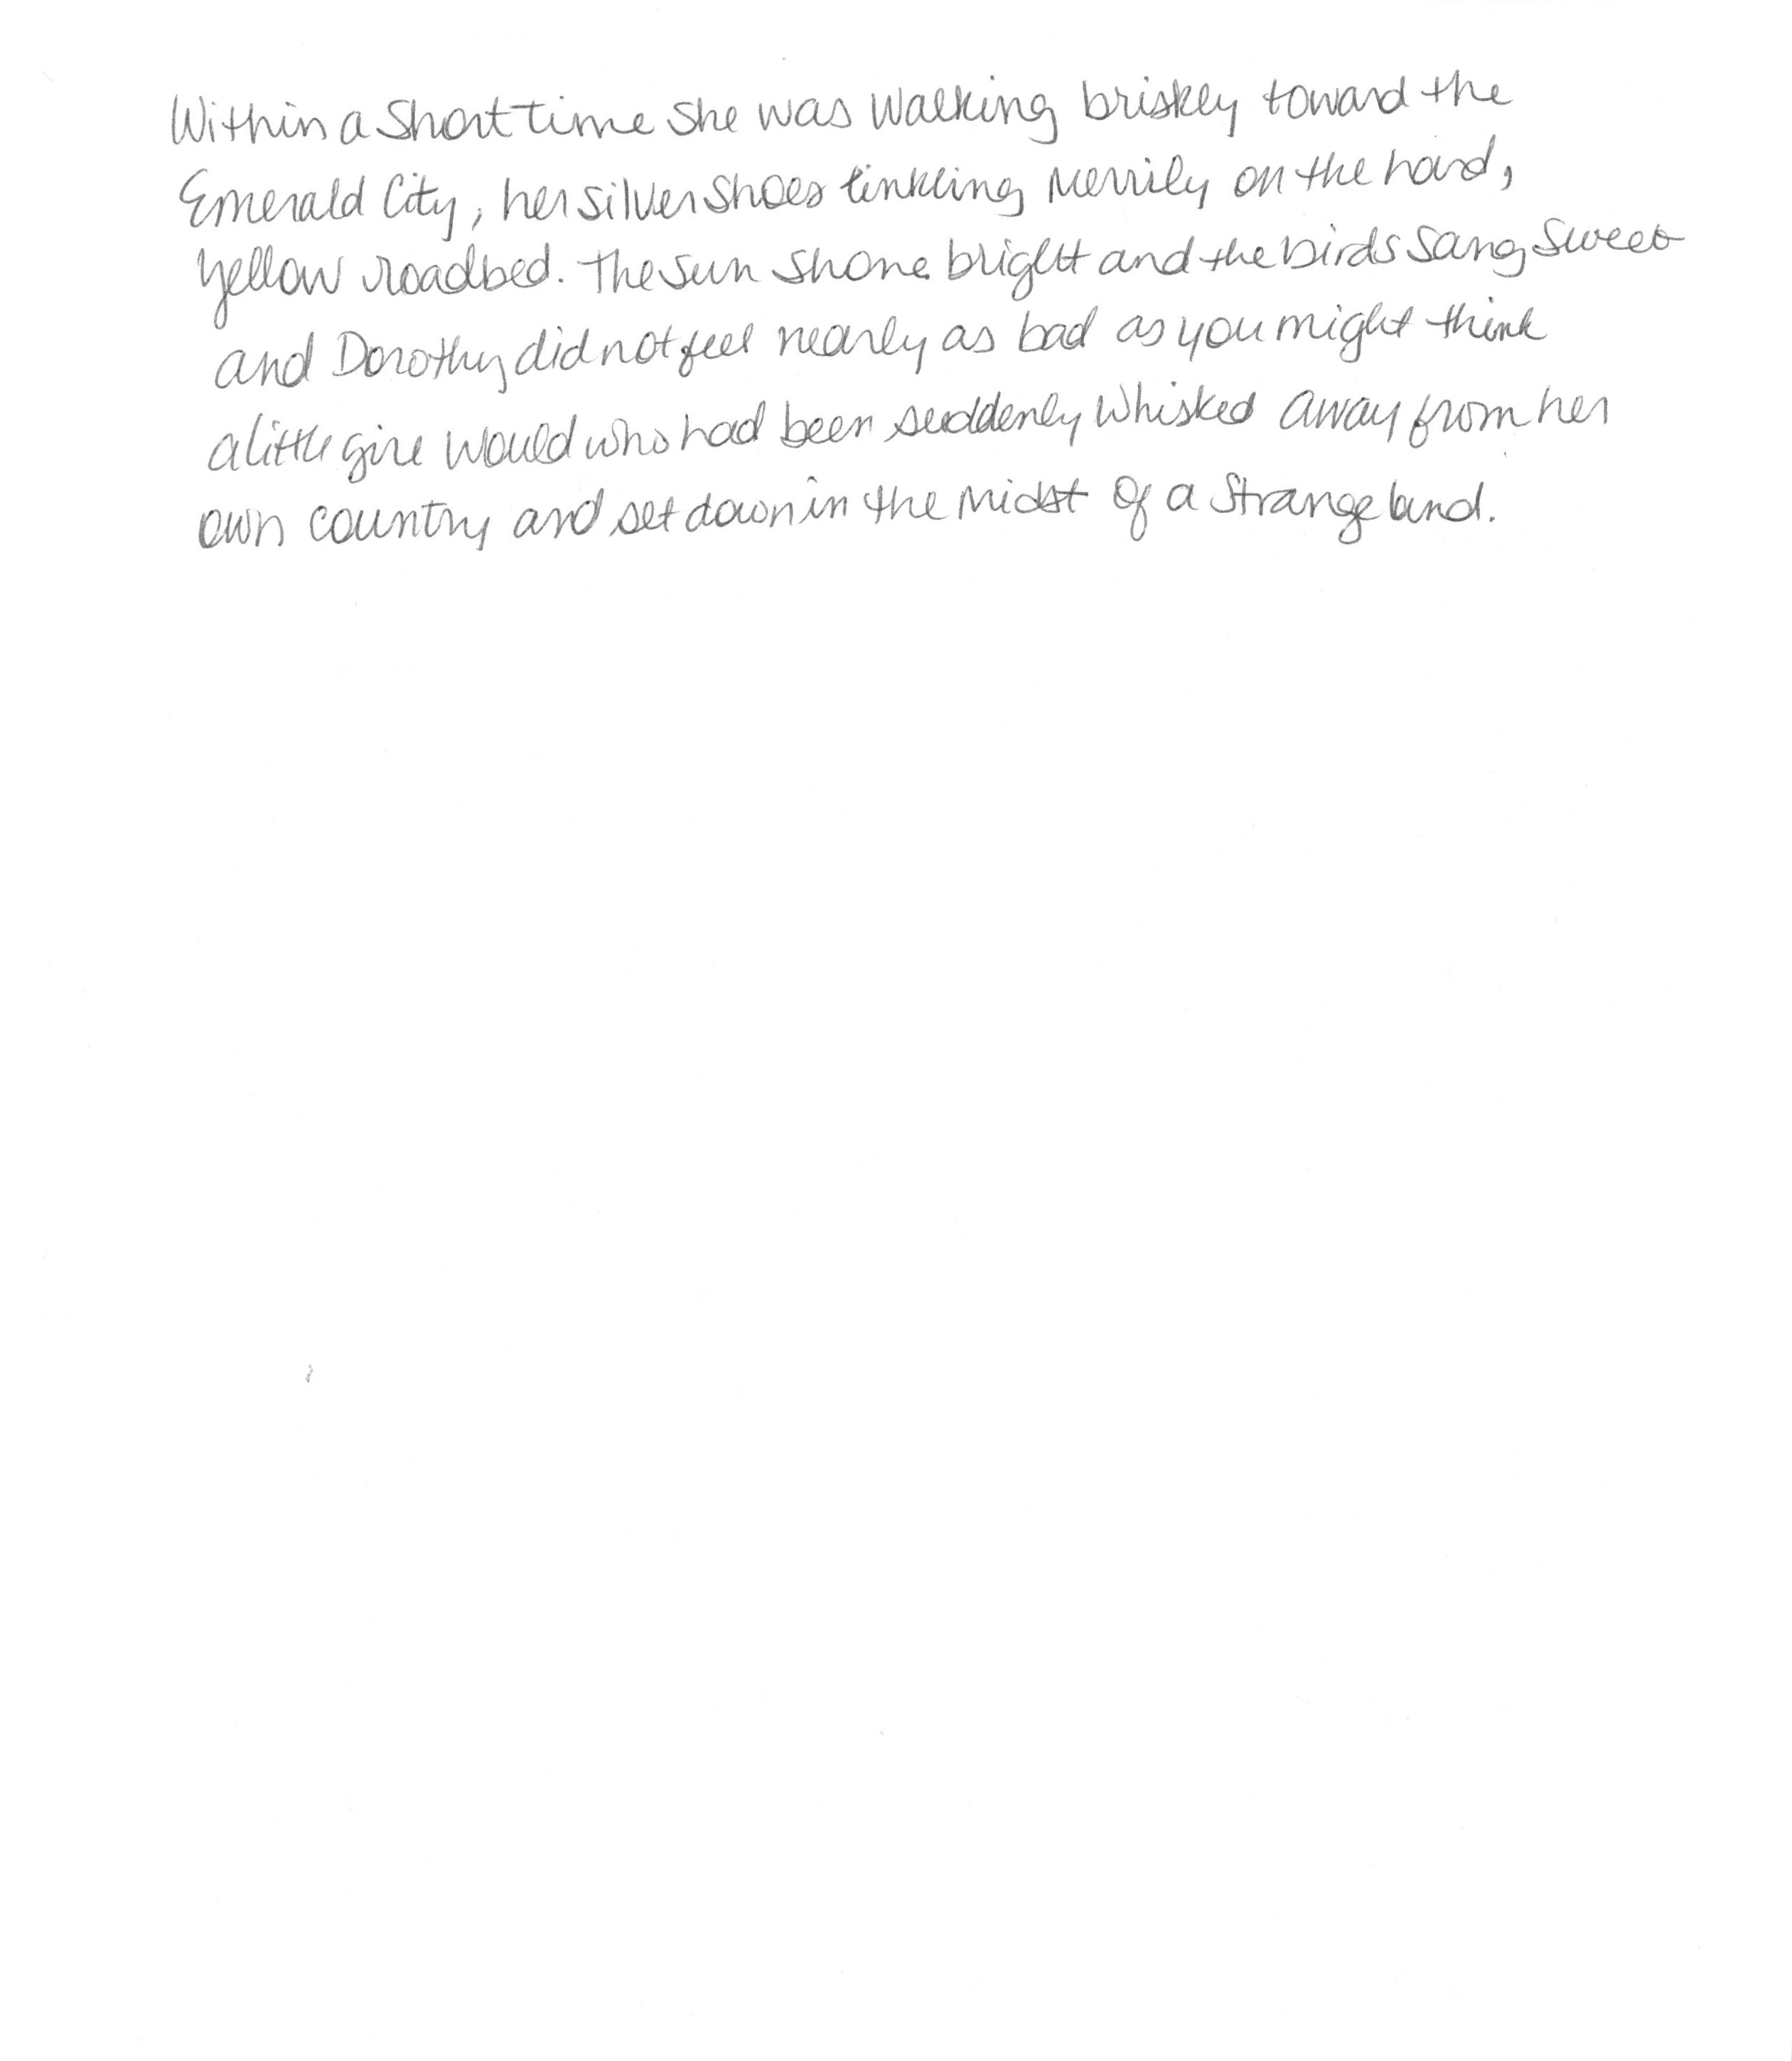 Within a short time she was walking briskly toward the
Emerald City, her silver shoes tinkling merrily on the hard,
yellow roadbed. The sun shone bright and the birds sang sweet
and Dorothy did not feel nearly as bad as you might think
a little girl would who had been suddenly whisked away from her
own country and set down in the midst of a strange land.